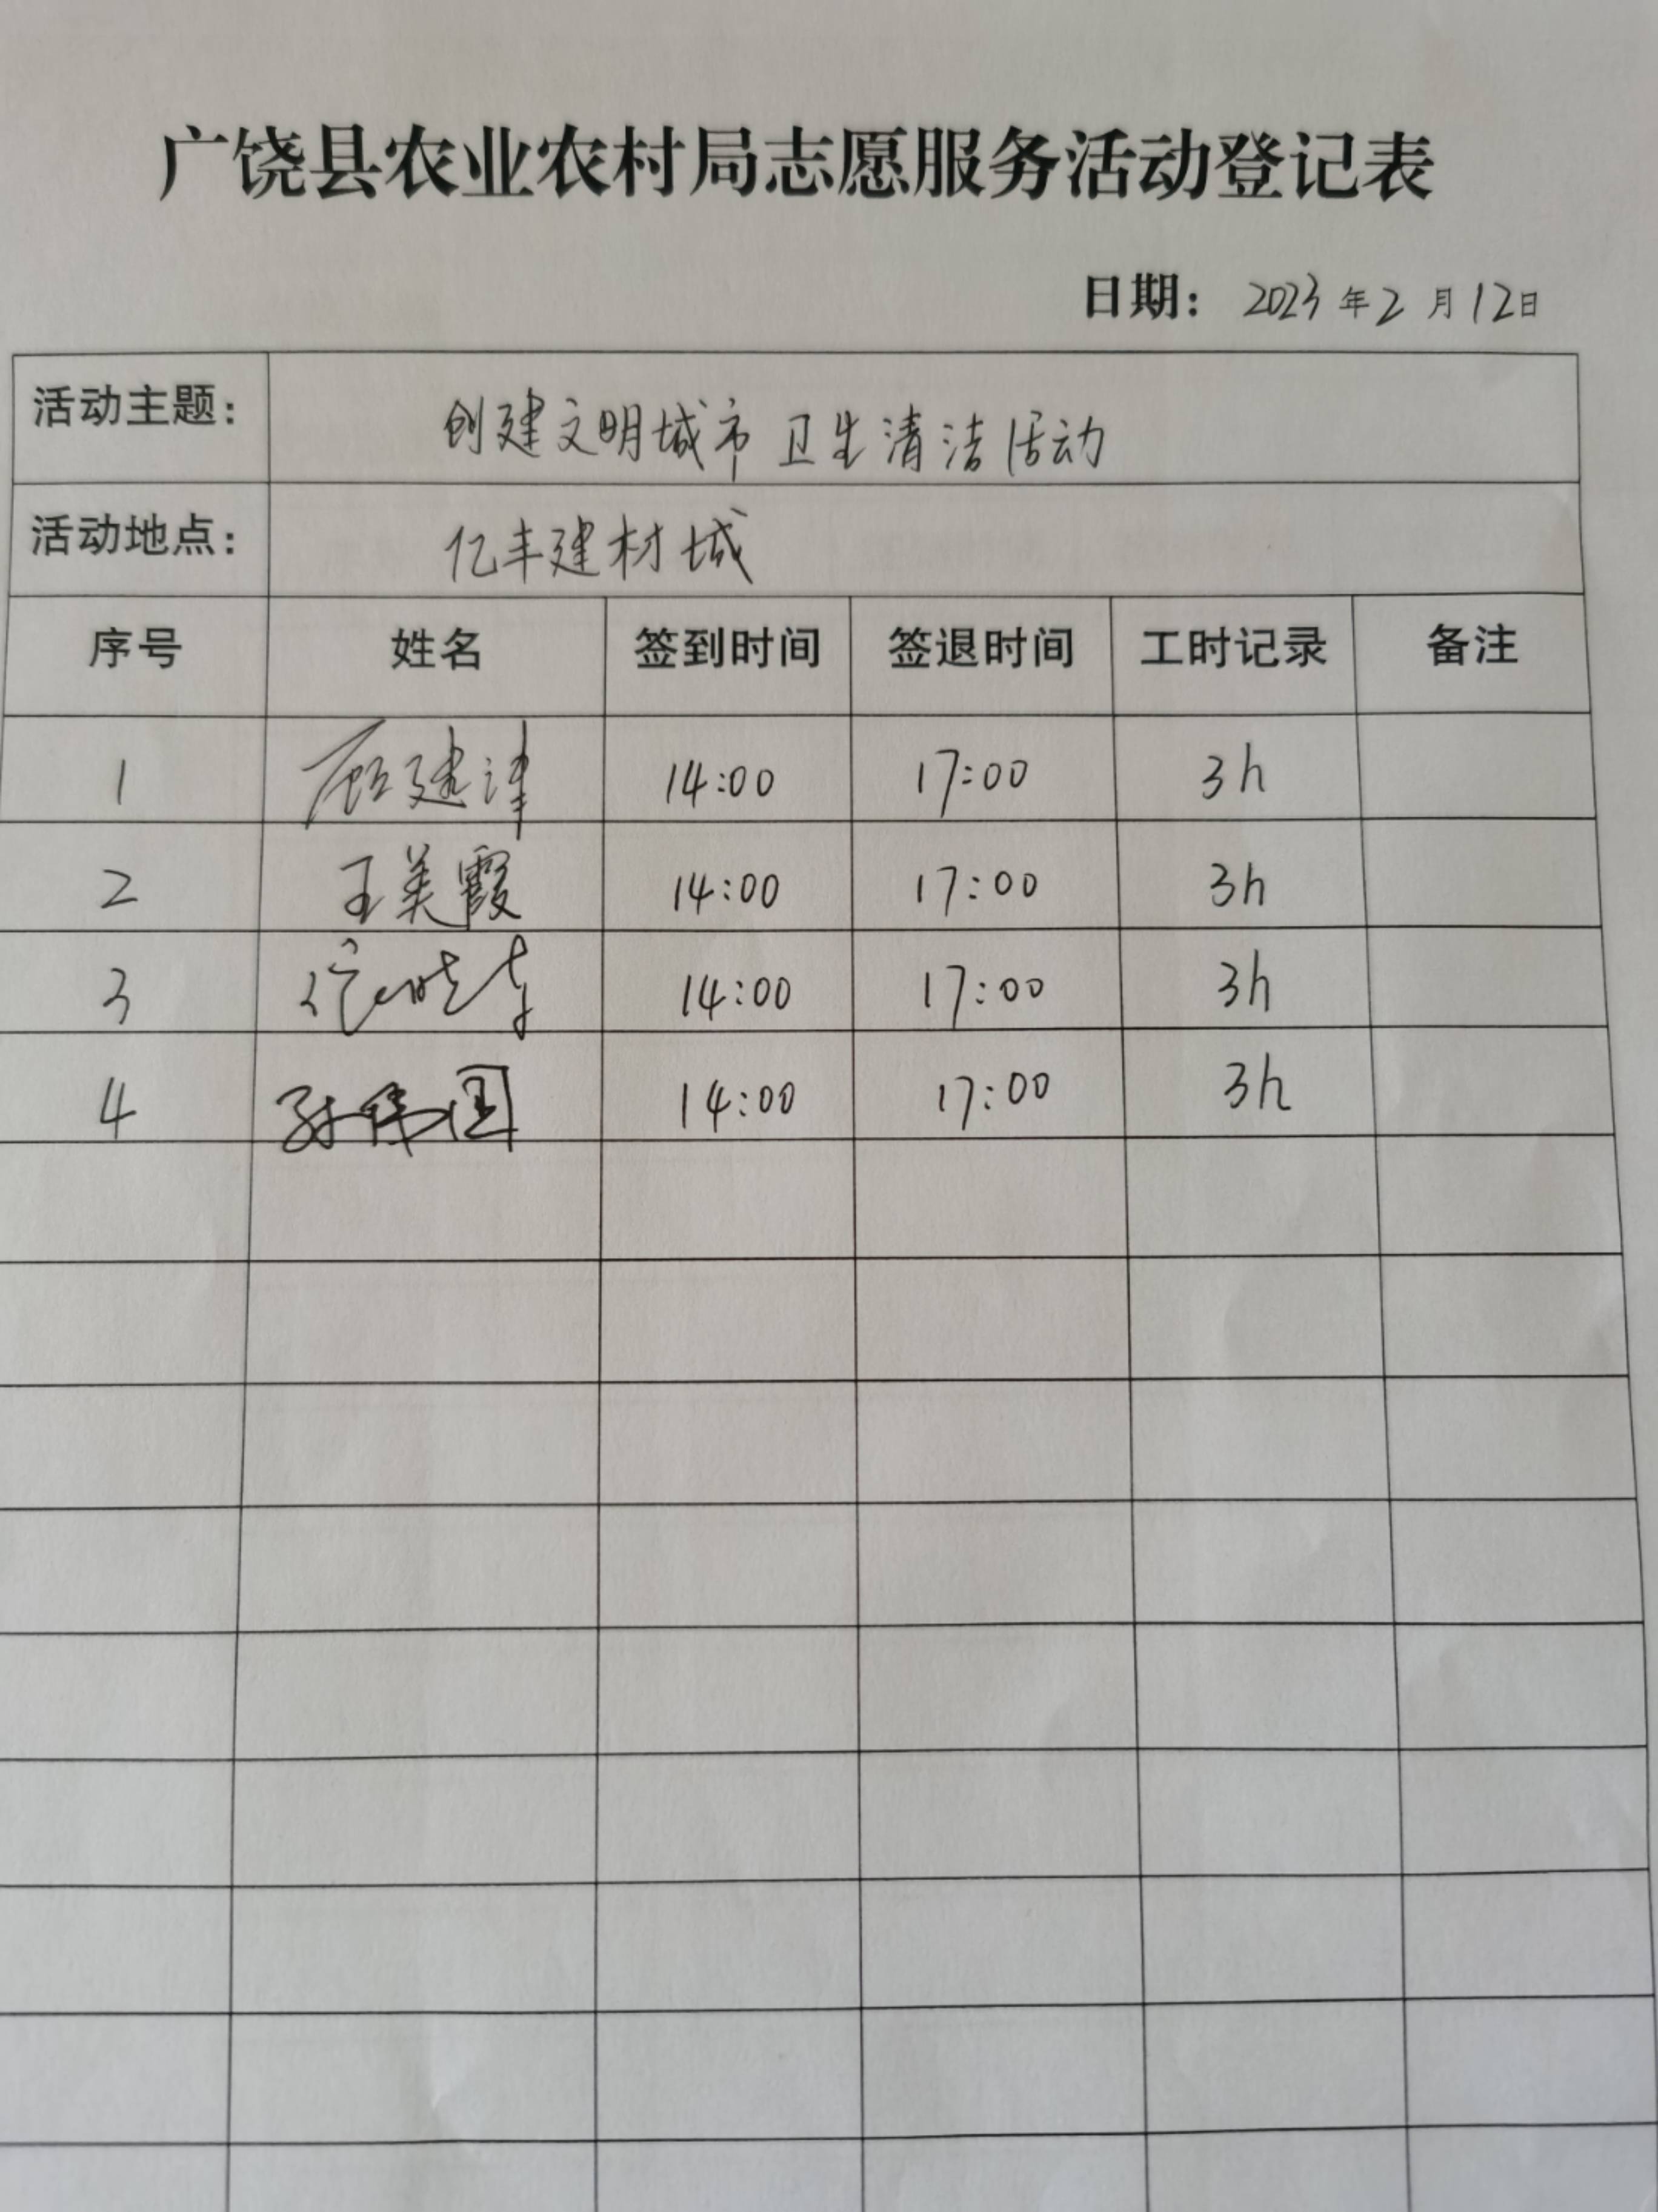 广饶县农业农村局志愿服务活动登记表
日期： 2023年2月12日
活动主题： 创建文明城市卫生清洁活动
活动地点： 亿丰建材城
序号 姓名 签到时间 签退时间 工时记录 备注
1 建津 14:00 17:00 3h
2 王美霞 14:00 17:00 3h
3 14:00 17:00 3h
4 孙伟国 14:00 17:00 3h